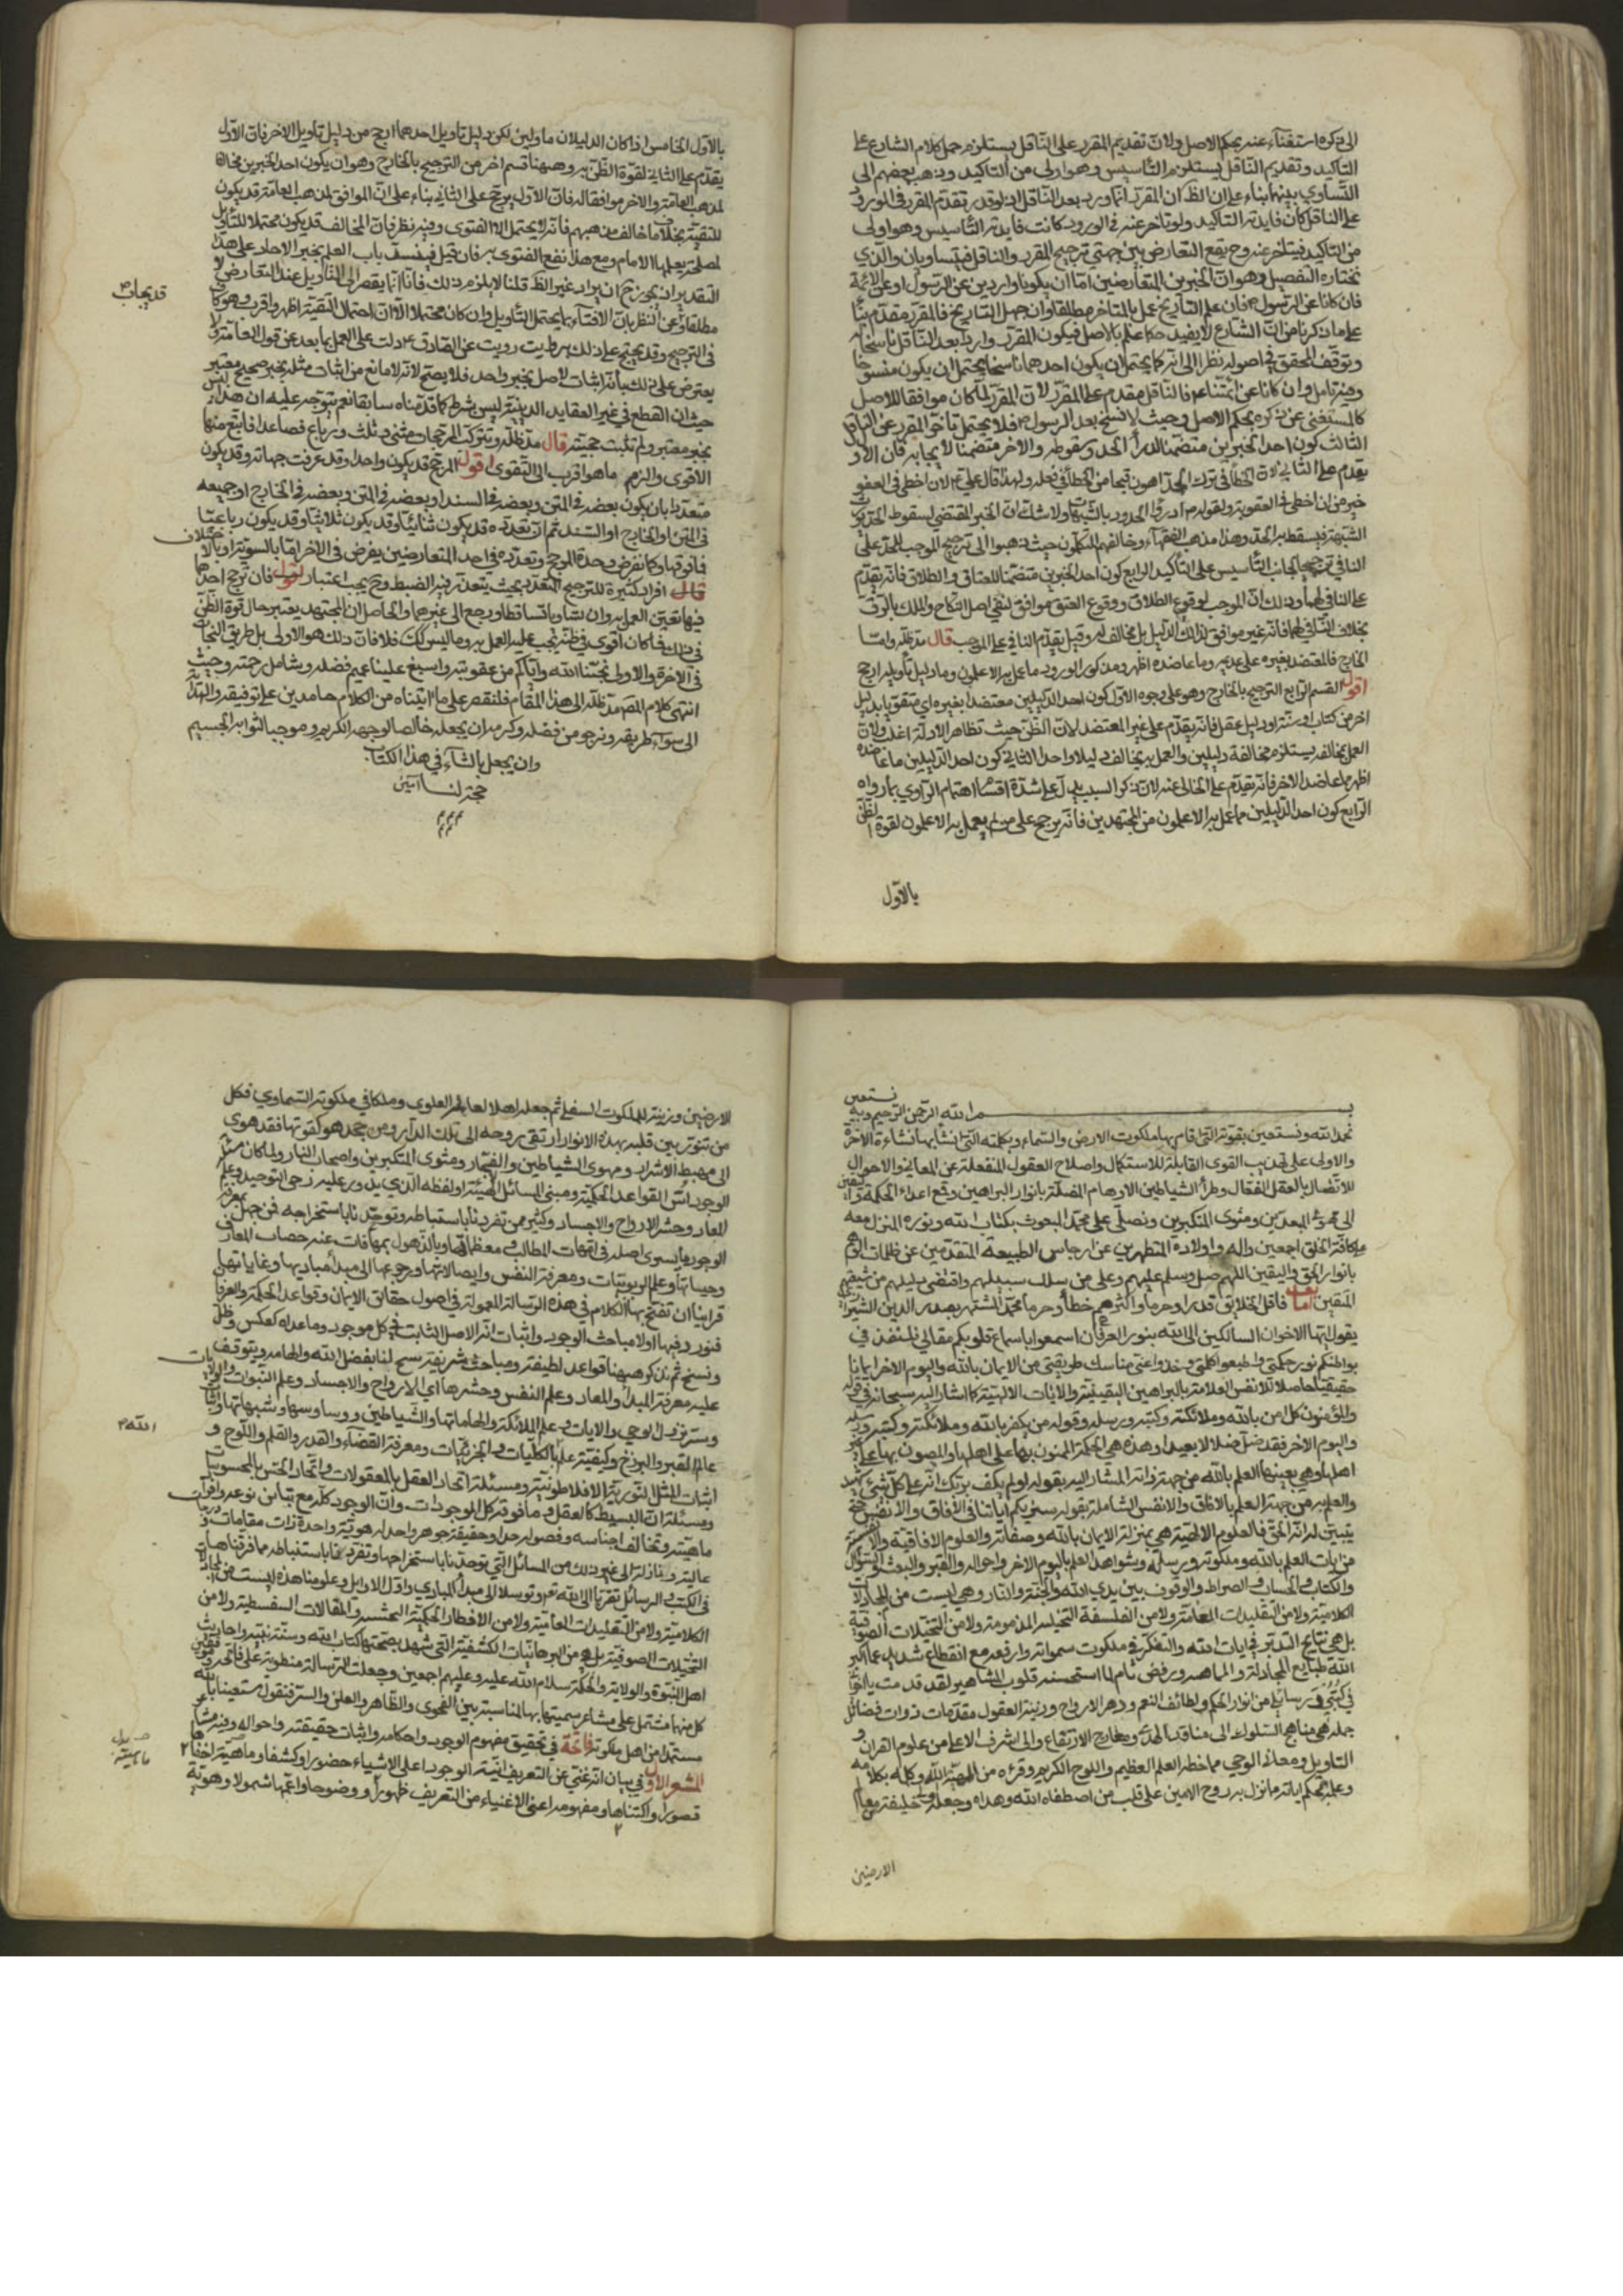 الى ذكره استغناء عنه بحكم الاصل ولان تقديم المقرر على الناقل يستلزم حمل كلام الشارع على
التاكيد وتقديم الناقل يستلزم التأسيس وهو اولى من التاكيد وذهب بعضهم الى
التساوي بينهما بناء على ان الظ ان المقرر انما ورد بعد الناقل اذ لو قدر تقدم المقرر في الورود
على الناقل كان فايدته التاكيد ولو تاخر عنه في الورود كانت فايدته التأسيس وهو اولى
من التاكيد فيتاخر عنه وح يقع التعارض بين جهتي ترجيح المقرر والناقل فيتساويان والذي
نختاره التفصيل وهو ان الخبرين المتعارضين اما ان يكونا واردين عن الرسول او عن الائمة
فان كانا عن الرسول فان علم التاريخ عمل بالمتاخر مطلقا وان جهل التاريخ فالمقرر مقدم بناء
على ما ذكرنا من ان الشارع لا يفيد حكما علم بالاصل فيكون المقرر واردا بعد الناقل ناسخا له
وتوقف المحقق في اصوله نظرا الى انه كما يحتمل ان يكون احدهما ناسخا يحتمل ان يكون منسوخا
وفيه تامل وان كانا عن ائمتنا ع فالناقل مقدم على المقرر لان المقرر لما كان موافقا للاصل
كالمستغنى عن ذكره بحكم الاصل وحيث لا نسخ بعد الرسول فلا يحتمل تاخر المقرر عن الناقل
الثالث كون احد الخبرين متضمنا لدرأ الحد وسقوطه والاخر متضمنا لايجابه فان الاول
يقدم على الثاني لان الخطأ في ترك الحد اهون قبحا من الخطأ في فعله ولهذا قال علي ع لان اخطى في العفو
خير من ان اخطى في العقوبة ولقوله ادرؤا الحدود بالشبهات ولا شك ان الخبر المقتضي لسقوط الحد يورث
الشبهة فيسقط به الحد وهذا مذهب الفقهاء وخالفهم المتكلمون حيث ذهبوا الى ترجيح الموجب للحد على
النافي ترجيحا لجانب التأسيس على التأكيد الرابع كون احد الخبرين متضمنا للعتاق والطلاق فانه يقدم
على النافي لهما وذلك ان الموجب لوقوع الطلاق ووقوع العتق موافق لنفي اصل النكاح والملك بالرق
بخلاف النافي لهما فانه غير موافق لذلك الدليل بل مخالف له وقيل يقدم النافي على الموجب قال مد ظله واما
الخارج فالمعتضد بغيره على عدمه وما عاضده اظهر ومذكور الورود وما عمل به الاعلمون وما دليل تأويله ارجح
اقول القسم الرابع الترجيح بالخارج وهو على وجوه الاول كون احد الدليلين معتضدا بغيره اي متقويا بدليل
اخر من كتاب او سنة او دليل عقل فانه يقدم على غير المعتضد لان الظن حيث تظاهر الادلة اغلب ولان
العمل بمخالفه يستلزم مخالفة دليلين والعمل به يخالف دليلا واحدا الثاني كون احد الدليلين ما عاضده
اظهر مما عاضد الاخر فانه يقدم على الخالي عنه لان ذكر السبب يدل على شدة اهتمام الراوي بما رواه
الرابع كون احد الدليلين مما عمل به الاعلمون من المجتهدين فانه يرجح على ما لم يعمل به الاعلمون لقوة الظن
بالاول
بالاول الخامس اذا كان الدليلان ماولين لكن دليل تاويل احدهما ارجح من دليل تاويل الاخر فان الاول
يقدم على الثاني لقوة الظن به وههنا قسم اخر من الترجيح بالخارج وهو ان يكون احد الخبرين مخالفا
لمذهب العامة والاخر موافقا له فان الاول يرجح على الثاني بناء على ان الموافق لمذهب العامة قد يكون
للتقية بخلاف ما خالف مذهبهم فانه لا يحتمل الا الفتوى وفيه نظر فان المخالف قد يكون محتملا للتأويل
لمصلحة يعلمها الامام ومع هذا تقع الفتوى به فان قيل فينسد باب العلم بخبر الاحاد على هذا
التقدير اذ يجوز ح ان يراد غير الظ قلنا لا يلزم ذلك فانا انما نقصر الى التأويل عند التعارض لا
قد يجاب
مطلقا وعن النظر بان الافتاء بما يحتمل التأويل وان كان محتملا الا ان احتمال التقية اظهر واقرب وهو كاف
في الترجيح وقد يحتج على ذلك برواية رويت عن الصادق ع دلت على العمل بما بعد عن قول العامة ولا
يعترض على ذلك بانه اثبات لاصل بخبر واحد فلا يصح لانه لا مانع من اثبات مثله بخبر صحيح معتبر
حيث ان القطع في غير العقايد الدينية ليس شرطا كما قدمناه سابقا نعم يتوجه عليه ان هذا ليس
بخبر معتبر ولم تثبت حجيته قال مد ظله وتتركب المرجحات مثنى وثلث ورباع فصاعدا فاتبع منها
الاقوى والزم ما هو اقرب الى التقوى اقول المرجح قد يكون واحدا وقد عرفت جهاته وقد يكون
متعددا بان يكون بعضه في المتن وبعضه في السند او بعضه في المتن وبعضه في الخارج او جميعه
في المتن او الخارج او السند ثم ان تعدده قد يكون ثنائيا وقد يكون ثلاثيا وقد يكون رباعيا
فما فوقها وكما نفرض وحدة المرجح وتعدده في احد المتعارضين يفرض في الاخر اما بالسوية او بالاختلاف
افراد كثيرة للترجيح المتعدد بحيث يتعذر فيه الضبط وح يجب اعتبار فان ترجح احدها
فيها تعين العمل به وان تساويا تساقطا ورجع الى غيرهما والحاصل ان المجتهد يعتبر حال قوة الظن
في ذلك فما كان اقوى في ظنه يجب عليه العمل به وما ليس كك فلا فان ذلك هو الاولى بل طريق النجاة
في الاخرة والاولى نجينا الله واياكم من عقوبته واسبغ علينا عميم فضله وشامل رحمته وحيث
انتهى كلام المص مد ظله الى هذا المقام فلنقصر على ما اتيناه من الكلام حامدين على توفيقه والهداية
الى سواء طريقه ونرجو من فضله وكرمه ان يجعله خالصا لوجهه الكريم وموجبا لثوابه الجسيم
وان يجعل بالشاء في هذا الكتاب
حجة لنا آمين
بسم الله الرحمن الرحيم وبه نستعين
نحمد الله ونستعين بقوته التي اقام بها ملكوت الارض والسماء وبكلمته التي انشأ بها نشاءة الاخرة
والاولى على تهذيب القوى القابلة للاستكمال واصلاح العقول المنفعلة عن المعاني والاحوال
للاتصال بالعقل الفعال وطرد الشياطين الاوهام المضلة بانوار البراهين وقمع اعداء الحكمة واليقين
الى مهوى المبعدين ومثوى المتكبرين ونصلى على محمد المبعوث بكتاب الله ونوره المنزل معه
على كافة الخلق اجمعين واله واولاده المتطهرين عن ارجاس الطبيعة المتقدسين عن ظلمات الوهم
بانوار الحق واليقين اللهم صل وسلم عليهم وعلى من سلك سبيلهم واقتفى دليلهم من شيعتهم
المتقين اما بعد فاقل الخلايق قدرا وجرما واكثرهم خطأ وجرما محمد المشتهر بصدر الدين الشيرازي
يقول ايها الاخوان السالكين الى الله بنور العرفان اسمعوا باسماع قلوبكم مقالي لينفذ في
بواطنكم نور حكمتي واطيعوا كلمتي وخذوا عني مناسك طريقتي من الايمان بالله واليوم الاخر ايمانا
حقيقيا حاصلا للانفس العلامة بالبراهين اليقينية والايات الالهية كما اشار اليه سبحانه في قوله
والمؤمنون كل امن بالله وملائكته وكتبه ورسله وقوله من يكفر بالله وملائكته وكتبه ورسله
واليوم الاخر فقد ضل ضلالا بعيدا وهذه هي الحكمة الممنون بها على اهلها والمضنون بها على غير
اهلها وهي بعينها العلم بالله من جهة ذاته المشار اليه بقوله اولم يكف بربك انه على كل شيء شهيد
والعلم به من جهة العلم بالافاق والانفس الشاملة بقوله سنريهم اياتنا في الافاق والانفس حتى
يتبين لهم انه الحق فالعلوم الالهية هي بمنزلة الايمان بالله وصفاته والعلوم الافاقية والانفسية
من ايات العلم بالله وملكوته ورسله وشواهد العلم باليوم الاخر واحواله والقبر والبعث والسؤال
والكتاب والحساب والصراط والوقوف بين يدي الله والجنة والنار وهي ليست من المجادلات
الكلامية ولا من التقليدات العامة ولا من الفلسفة البحثية المذمومة ولا من التخيلات الصوفية
بل هي نتايج التدبر في ايات الله والتفكر في ملكوت سمواته وارضه مع انقطاع شديد عما اكب
عليه طبايع المجادلة والجماهير ورفض تام لما استحسنه قلوب المشاهير لقد قدمت يا اخواني
في كتبي ورسايلي من انوار الحكم ولطائف النعم ودهر الارواح وزينة العقول مقدمات ذوات فضائل
جمة هي مناهج السلوك الى منازل الهدى ومعارج الارتقاء والى الشرف الاعلى من علوم القران و
التاويل ومعاني الوحي مما خطه القلم العظيم واللوح الكريم وقرءه من الهمه الله وكلمه بكلامه
وعلمه محكم اياته مما نزل به روح الامين على قلب من اصطفاه الله وهداه وجعله خليفة في عالم
الارضين
الارضين وزينة للملكوت السفلي ثم جعله اهلا لعالمه العلوي وملكا في ملكوته السماوي فكل
من تنور بيت قلبه بهذه الانوار ارتقى بروحه الى تلك الدار ومن جحد هو كفر بها فقد هوى
الى مهبط الاشرار ومهوى الشياطين والفجار ومثوى المتكبرين واصحاب النار ولما كان مسئلة
الوجود اس القواعد الحكمية ومبنى المسائل الالهية والقطب الذي يدور عليه رحى التوحيد وعلم
المعاد وحشر الارواح والاجساد وكثير مما تفردنا باستنباطه وتوحدنا باستخراجه فمن جهل بمعرفة
الوجود يسرى اصله في امهات المطالب ومعظماتها وبالذهول عنها فات عنه خفيات المعارف
وخبياتها وعلم الربوبيات ومعرفة النفس واتصالاتها ورجوعها الى مبدأ مباديها وغاياتها
فراينا ان نفتتح بها الكلام في هذه الرسالة المعمولة في اصول حقائق الايمان وقواعد الحكمة والعرفان
فنورد فيها اولا مباحث الوجود واثبات انه الاصل الثابت في كل موجود وما عداه كعكس وظل
ونسنح ثم نذكر ههنا قواعد لطيفة ومباحث شريفة سنح لنا بفضل الله والهامه ويتوقف
عليه معرفة المبدأ والمعاد وعلم النفس وحشرها الى الارواح والاجساد وعلم النبوات والولايات
وسر نزول الوحي والايات وعلم الملائكة والهاماتها والشياطين ووساوسها وشبهاتها واثبات
عالم القبر والبرزخ وكيفية علم الله بالكليات والجزئيات ومعرفة القضاء والقدر والقلم واللوح و
اثبات المثل النورية الافلاطونية ومسئلة اتحاد العقل بالمعقولات واتحاد الحس بالمحسوسات
ومسئلة ان البسيط كالعقل وما فوقه كل الموجودات وان الوجود كله مع تباين نوعه وافراده
ماهية وتخالف اجناسه وفصوله حدا وحقيقة جوهر واحد له هوية واحدة ذات مقامات ودرجات
عالية ونازلة الى غير ذلك من المسائل التي توحدنا باستخراجها وتفردنا باستنباطه مما فرقناها
في الكتب والرسائل تقربا الى الله تع وتوسلا الى مبدأ المبادي واول الاوايل وعلومنا هذه ليست من المجادلات
الكلامية ولا من التقليدات العامية ولا من الانظار الحكمية البحثية والمغالات السفسطية ولا من
التخيلات الصوفية بل هو من البرهانيات الكشفية التي شهد بصحتها كتاب الله وسنة نبيه واحاديث
اهل النبوة والولاية والحكمة سلام الله عليه وعليهم اجمعين وجعلت الرسالة منطوية على فاتحة وموقفين
كل منها مشتمل على مشاعر سميتها بها لمناسبة بين الفحوى والظاهر والعلن والسر فنقول مستعينا بالله
مستمدا من اهل ملكوته فاتحة في تحقيق مفهوم الوجود واحكامه واثبات حقيقته واحواله وفيه مشاعر
المشعر الاول في بيان انه غني عن التعريف انية الوجود اجلى الاشياء حضورا وكشفا وماهيته اخفاها
تصورا واكتناها ومفهومه اغنى الاغنياء عن التعريف ظهورا ووضوحا واعمها شمولا وهويته
الله